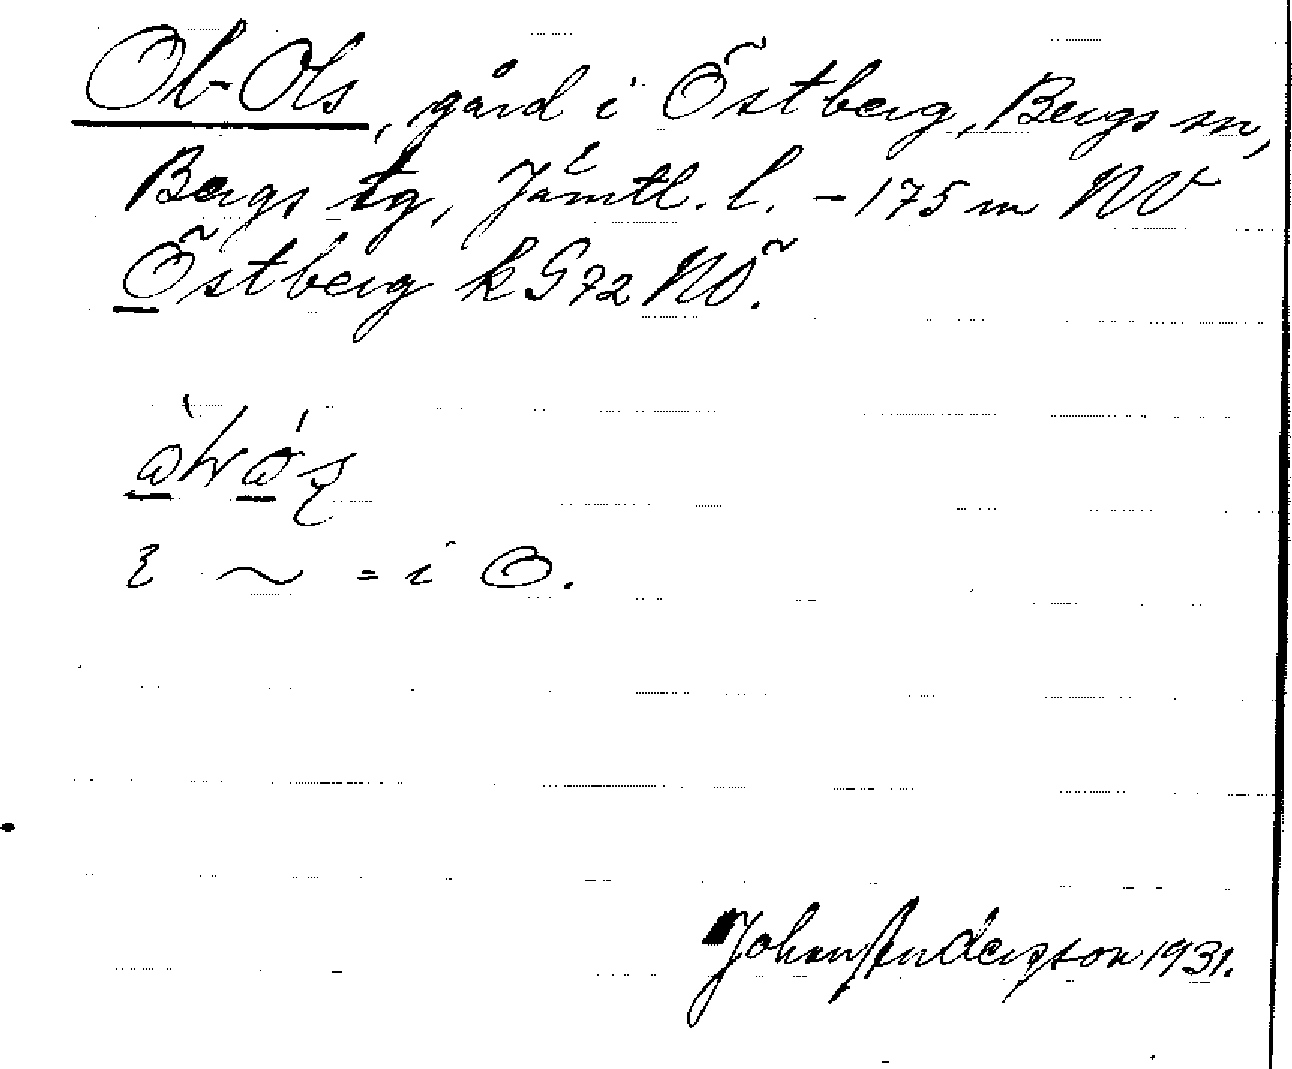 Ol-Ols, gård i Östberg, Bergs sn,
Bergs tg, Jämtl. l. - 175 m NV
Östberg k G72 NÖ.
i ~ = i O.
Johan Anderson 1931.